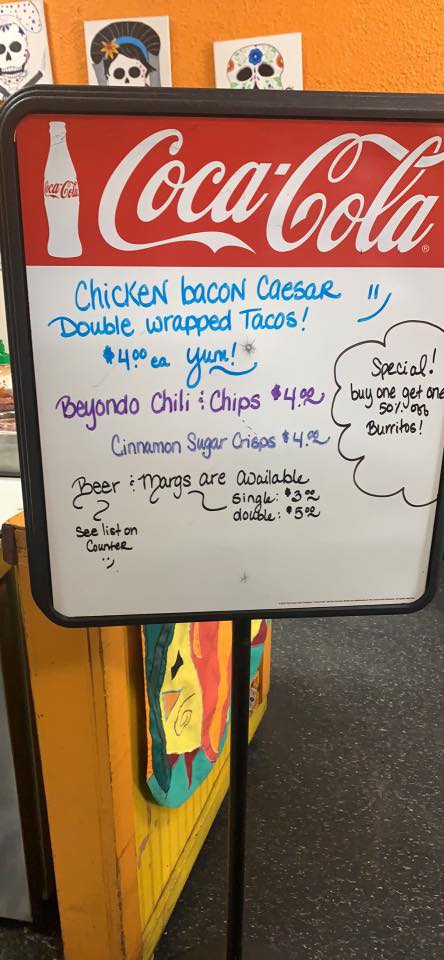 Coca-Cola
Coca-Cola®
Chicken bacon Caesar
Double wrapped Tacos!
$4.00 ea Yum!
Beyondo Chili & Chips $4.00
Cinnamon Sugar Crisps $4.00
Beer & Margs are available
single: $3.00
double: $5.00
See list on
Counter
Special!
buy one get one
50% off
Burritos!